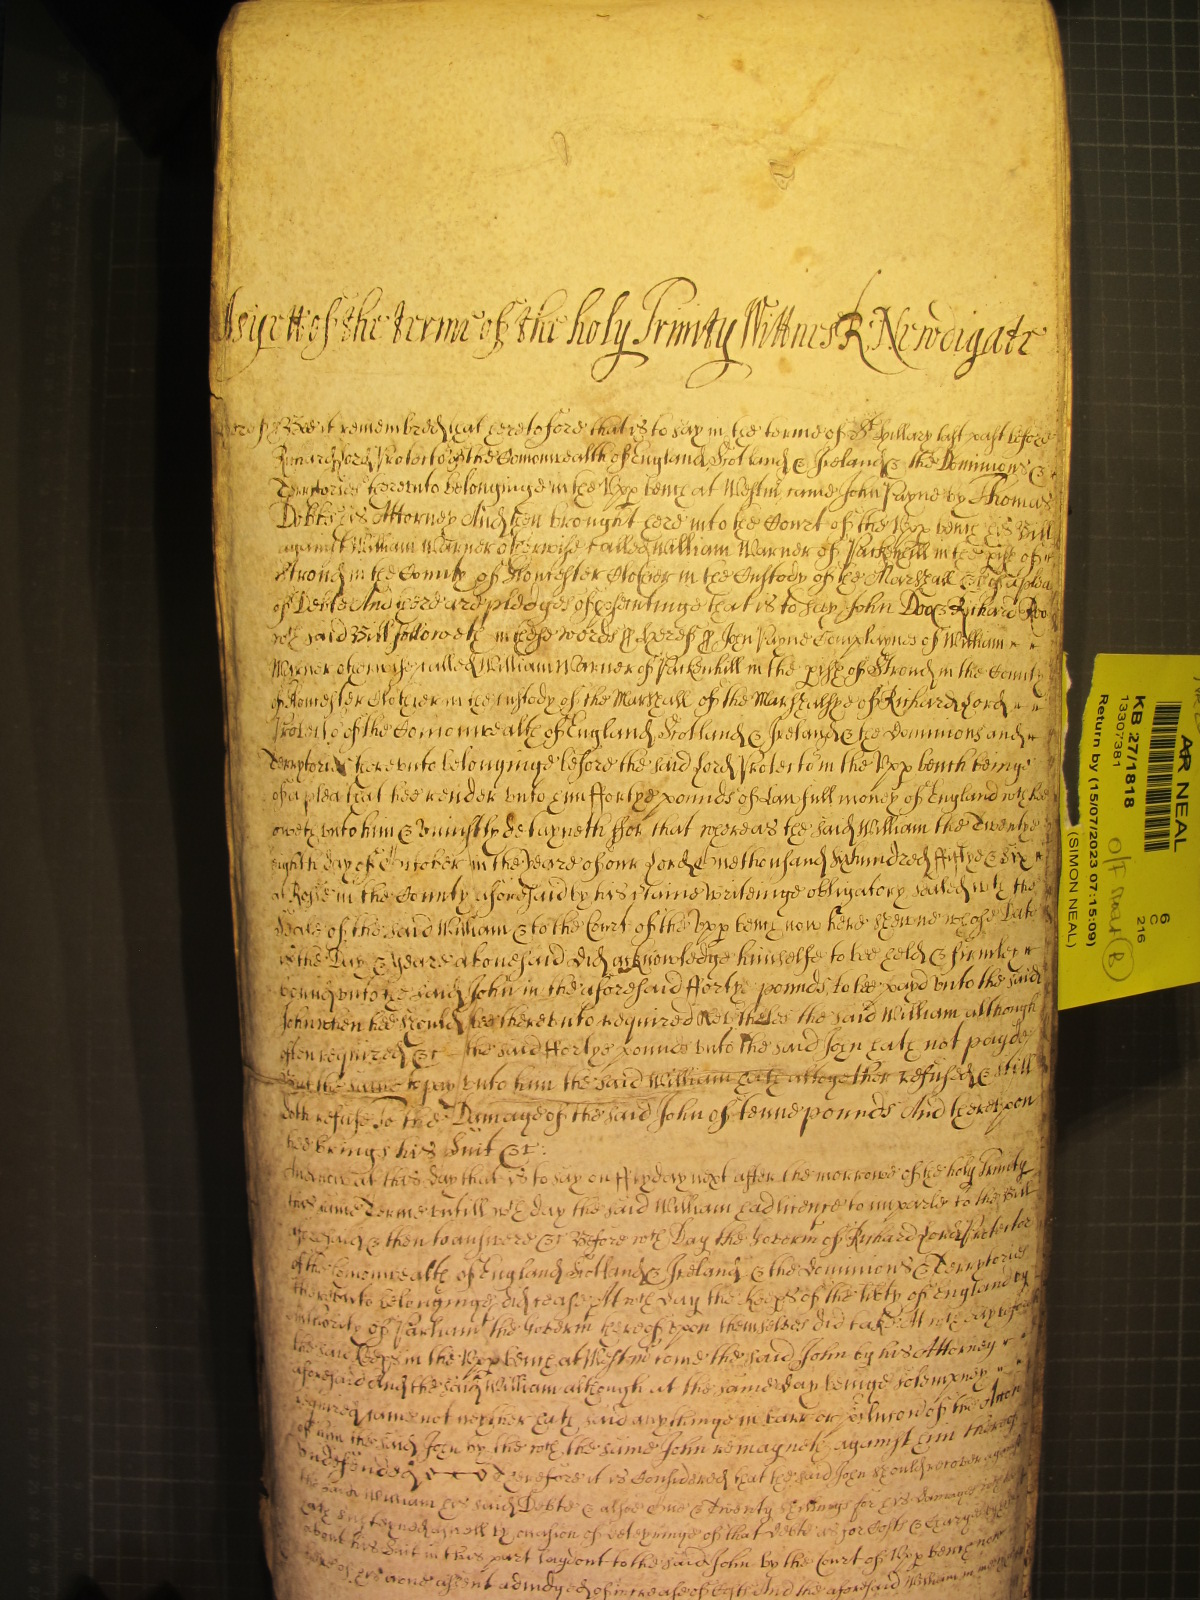 As yett of the terme of the holy Trinity Wittnes R Newdigate
Bee it remembred that heretofore that is to say in the terme of St Hillary last past before
Richard Lord Protector of the Comonwealth of England Scotland & Ireland & the Dominions &
Terrytories thereunto belonginge in the Upp bench at Westm came John Payne by Thomas
his Attorney And then brought here into the Court of the Upp bench his Bill
against William Warner otherwise called William Warner of Pakenhill in the pish of
Stroud in the County of Gloucester Clothier in the Custody of the Marshall &c of a plea
of Debte And there are pledges of psecutinge that is to say John Doo & Richard Roo
wch said Bill followeth in these words ss John Payne Complaynes of William
Warner otherwise called William Warner of Pakenhill in the pish of Stroud in the County
of Gloucester Clothier in the custody of the Marshall of the Marshalsye of Richard Lord
Protector of the Comonwealth of England Scotland & Ireland & the Dominions and
Terrytories thereunto belonginge before the said Lord Protector in the Upp bench beinge
of a plea that hee render unto him ffortye pounds of Lawfull money of England wch hee
oweth unto him & uniustly detayneth ffor that whereas the said William the Twentye
eighth day of October in the yeare of our Lord One thousand six hundred ffiftye & six
at in the County aforesaid by his certaine writeinge obligatory sealed wth the
Seale of the said William & to the Court of the Upp bench now here shewne whose Date
is the Day & yeare abovesaid did acknowledge himselfe to bee held & firmly
bound unto the said John in the aforesaid ffortye pounds to bee payd unto the said
John when hee should bee thereunto required Neverthelesse the said William although
often required &c the said ffortye pounds unto the said John hath not payde
But the same to pay unto him the said William hath altogether refused & still
doth refuse to the Damage of the said John of tenne pounds And thereupon
hee brings his Suit &c:
And now at this day that is to say on ffryday next after the morrowe of the holy Trinity
this same Terme untill wch day the said William had licence to imparle to the Bill
aforesaid & then to answere &c Before wch Day the Goverm of Richard Lord Protector
of the Comonwealth of England Scotland & Ireland & the Dominions & Terrytories
thereunto belonginge did cease At wch day the Keeps of the libty of England by
authority of Parliamt the Goverm thereof upon themselves did take At wch day before
the said Keeps in the Upp bench at Westm come the said John by his Attorney
aforesaid And the said William although at the same day beinge solempney
required came not neyther hath said anythinge in barr or pclusion of the Action
of him the said John by the wch the same John remayneth against him therein
undefended Therefore it is Considered that the said John should recover against
the said William his said Debte & alsoe One & Twenty shillings for his damages wch hee
hath susteyned aswell by occasion of deteyninge of that debte as for Costs & Charges by him
about his Suit in this part layd out to the said John by the Court of Upp bench now
here of his owne assent adiudged of increase of Costs And the aforesaid William in mercy
AR NEAL
KB 27/1818
13307381
Return by (15/07/2023 07:15:09)
(SIMON NEAL)
6
C
216
B